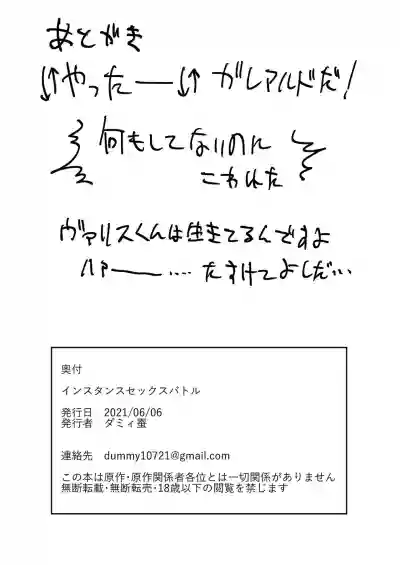 あとがき
↓↑やったー↓↑ ガレアルドだ!
何もしてないのに
こわれた
ヴァリスくんは生きてるんですよ
ハァー‥‥ たすけてよしだ‥‥
奥付
インスタンスセックスバトル
発行日 2021/06/06
発行者 ダミィ蛋
連絡先 dummy10721@gmail.com
この本は原作・原作関係者各位とは一切関係がありません
無断転載・無断転売・18歳以下の閲覧を禁じます